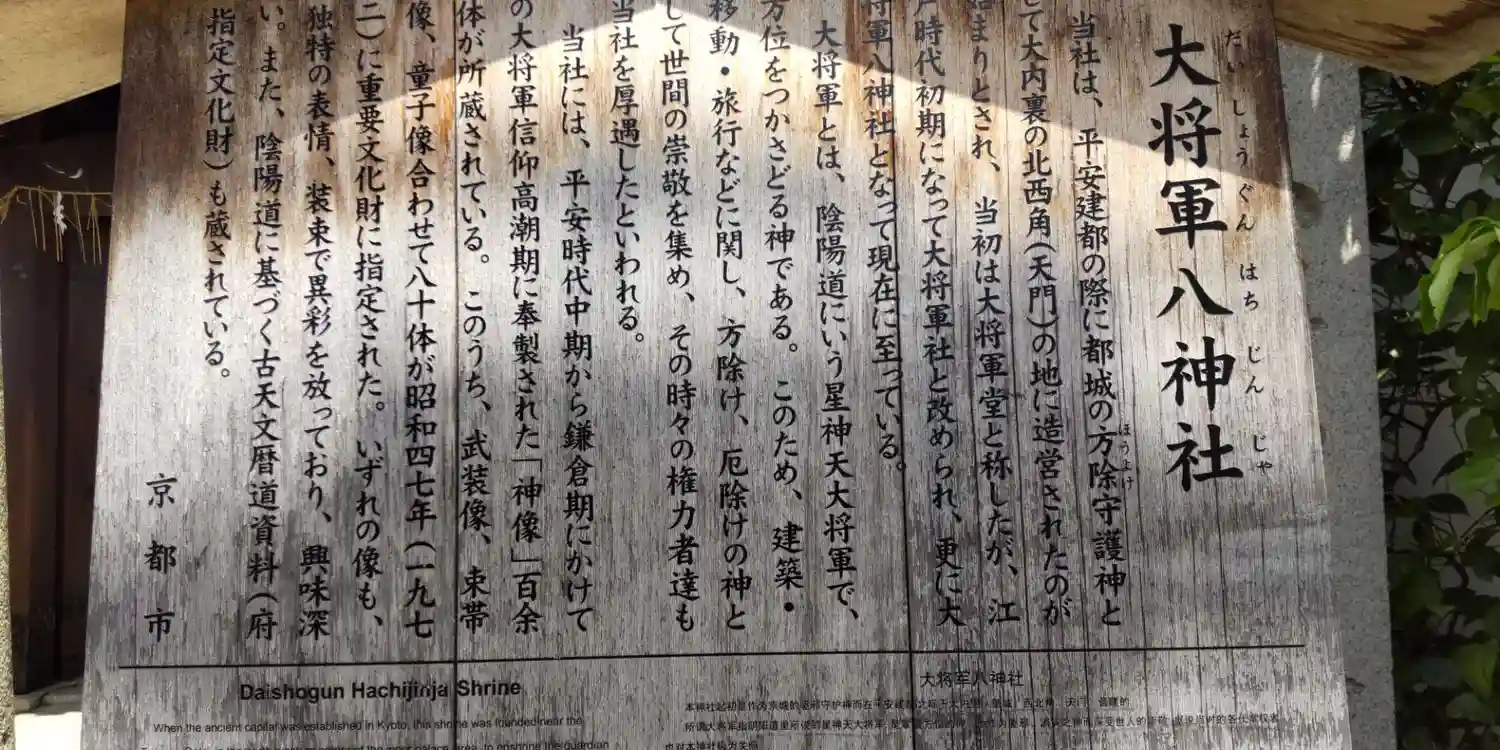 大将軍八神社
だいしょうぐんはちじんじゃ
当社は、平安建都の際に都城の方除守護神と
ほうよけ
して大内裏の北西角(天門)の地に造営されたのが
始まりとされ、当初は大将軍堂と称したが、江
戸時代初期になって大将軍社と改められ、更に大
将軍八神社となって現在に至っている。
大将軍とは、陰陽道にいう星神天大将軍で、
方位をつかさどる神である。このため、建築・
移動・旅行などに関し、方除け、厄除けの神と
して世間の崇敬を集め、その時々の権力者達も
当社を厚遇したといわれる。
当社には、平安時代中期から鎌倉期にかけて
の大将軍信仰高潮期に奉製された「神像」百余
体が所蔵されている。このうち、武装像、束帯
像、童子像合わせて八十体が昭和四七年(一九七
二)に重要文化財に指定された。いずれの像も、
独特の表情、装束で異彩を放っており、興味深
い。また、陰陽道に基づく古天文暦道資料(府
指定文化財)も蔵されている。
京都市
Daishogun Hachijinja Shrine
When the ancient capital was established in Kyoto, this shrine was founded near the
area, to enshrine the guardian
大将军八神社